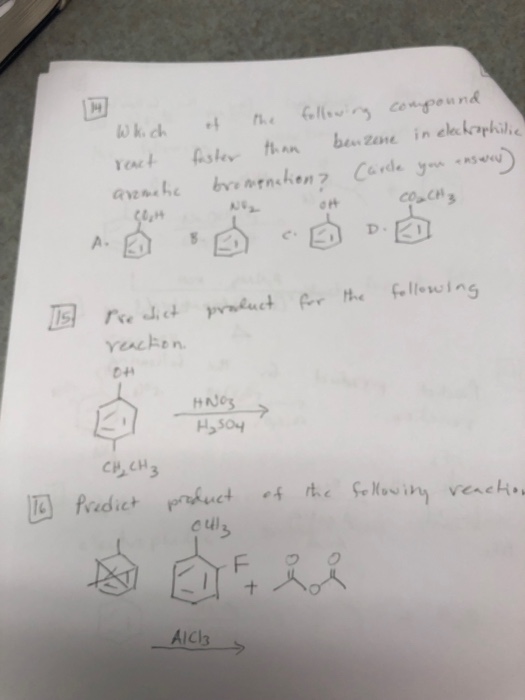 14
Which of the following compound
react faster than benzene in electrophilic
aromatic bromination? (Circle your answer)
CO2H NO2 OH CO2CH3
A. B C. D.
15 Predict product for the following
reaction.
OH
HNO3
H2SO4
CH2CH3
16 Predict product of the following reaction
CH3
F O O
+ O
AlCl3